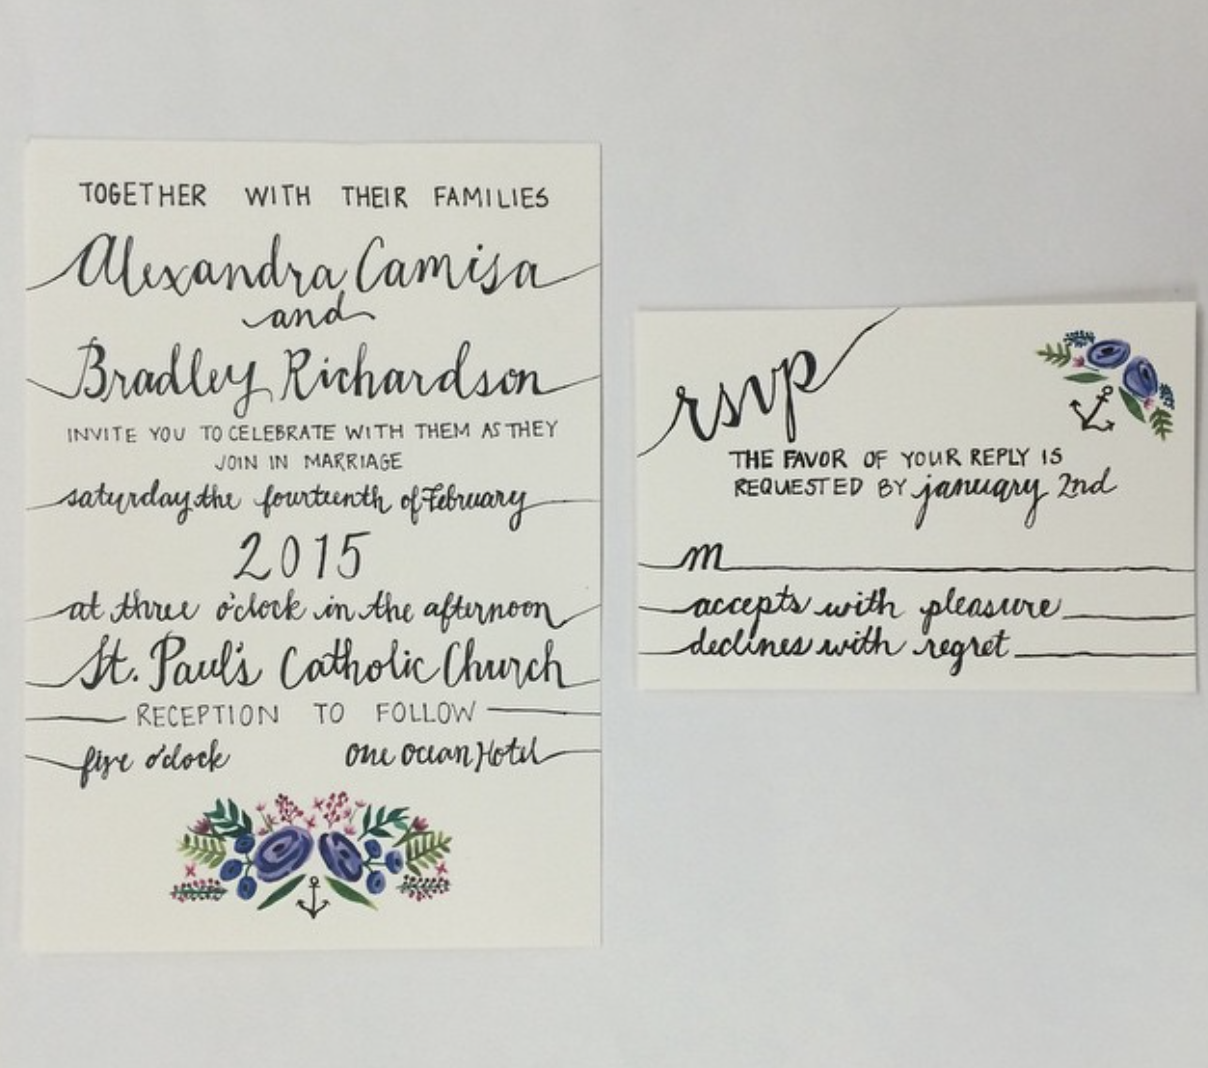 TOGETHER WITH THEIR FAMILIES
Alexandra Camisa
and
Bradley Richardson
INVITE YOU TO CELEBRATE WITH THEM AS THEY
JOIN IN MARRIAGE
saturday the fourteenth of February
2015
at three o'clock in the afternoon
St. Paul's Catholic Church
RECEPTION TO FOLLOW
five o'clock one ocean Hotel
rsvp
THE FAVOR OF YOUR REPLY IS
REQUESTED BY january 2nd
m
accepts with pleasure
declines with regret